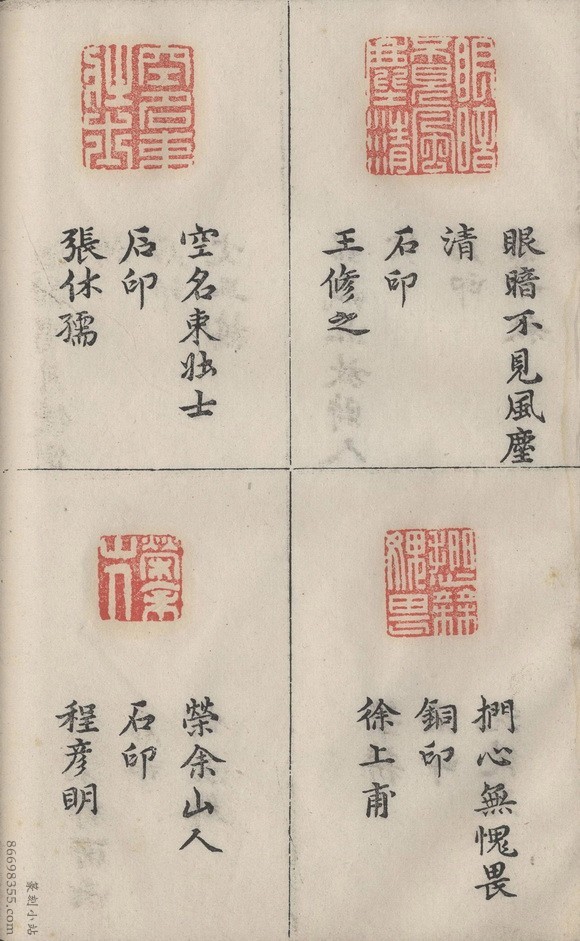 眼暗不見風塵
清
石印
王修之
空名東壯士
石印
張休孺
捫心無愧畏
銅印
徐上甫
榮余山人
石印
程彥明
篆刻小站
86698355.com